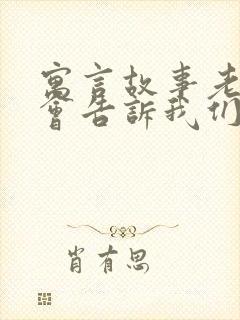 寓言故事老
會告訴我们
肖有思